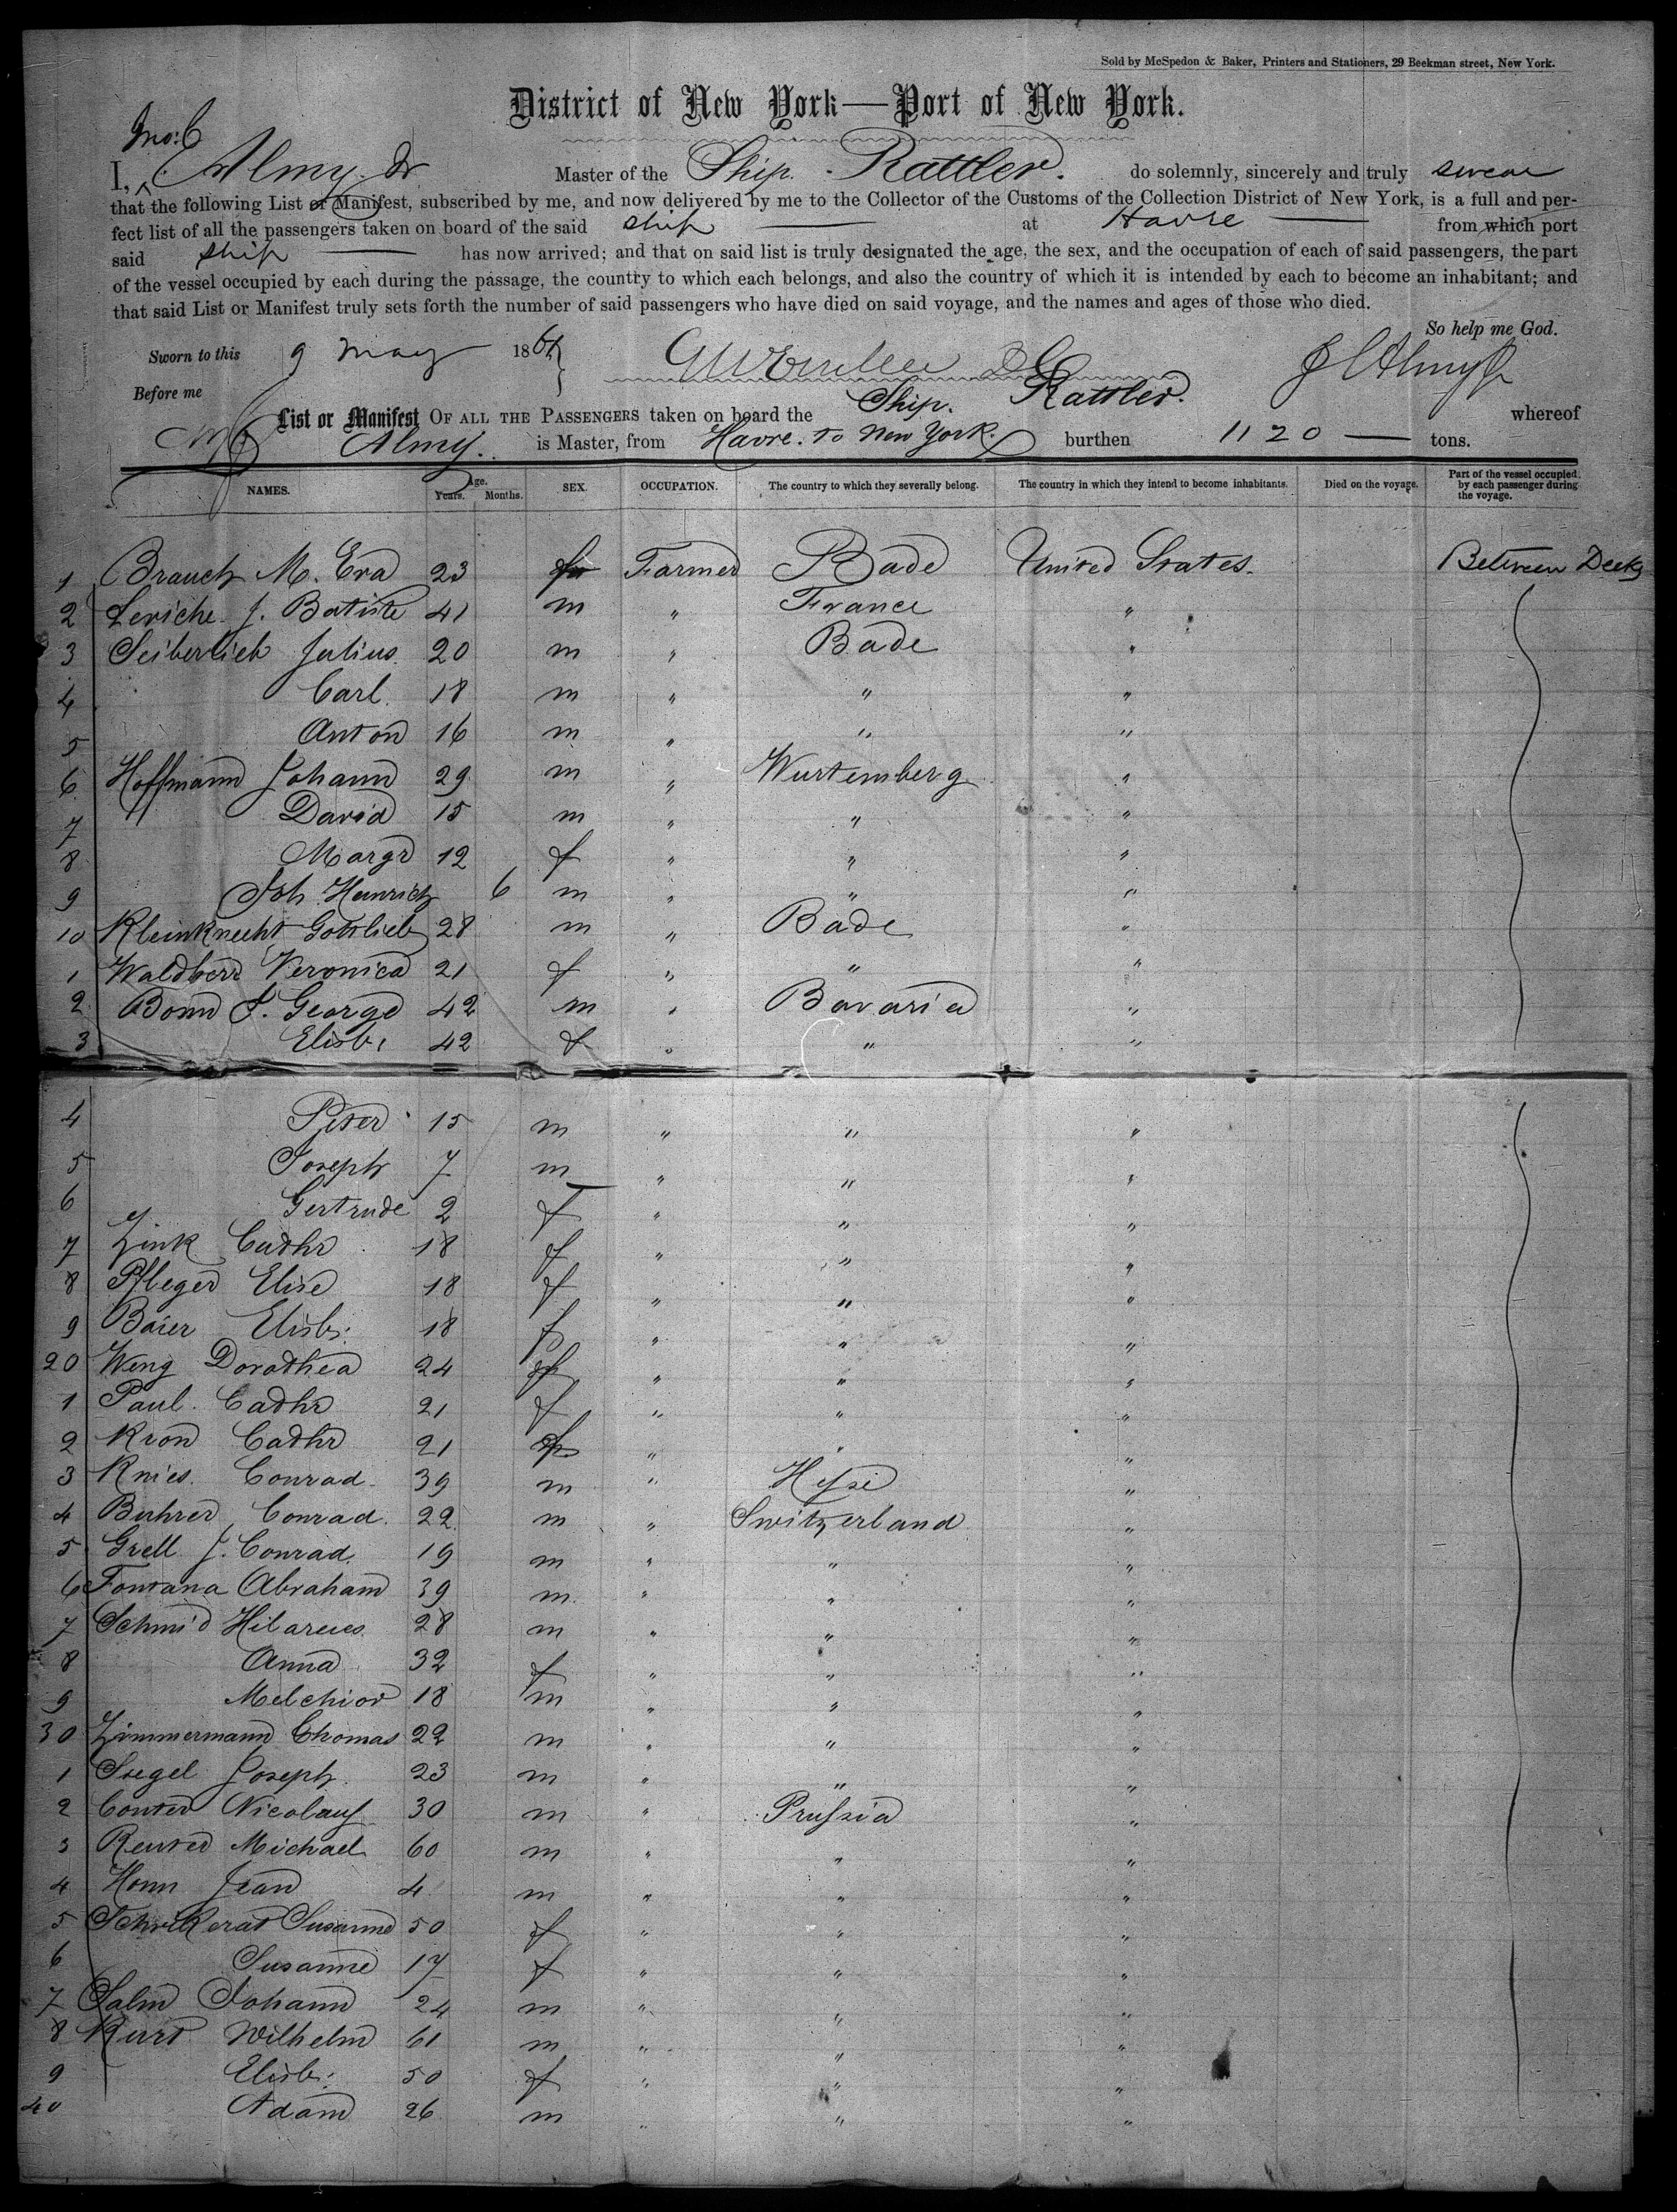 Sold by McSpedon & Baker, Printers and Stationers, 29 Beekman street, New York.
District of New York—Port of New York.
Jno: C
I, Almy Jr Master of the Ship. Rattler. do solemnly, sincerely and truly swear
that the following List or Manifest, subscribed by me, and now delivered by me to the Collector of the Customs of the Collection District of New York, is a full and per-
fect list of all the passengers taken on board of the said ship at Havre from which port
said ship has now arrived; and that on said list is truly designated the age, the sex, and the occupation of each of said passengers, the part
of the vessel occupied by each during the passage, the country to which each belongs, and also the country of which it is intended by each to become an inhabitant; and
that said List or Manifest truly sets forth the number of said passengers who have died on said voyage, and the names and ages of those who died.
So help me God.
Sworn to this 9 May 1861
J C Almy Jr
Before me
List or Manifest OF ALL THE PASSENGERS taken on board the Ship. Rattler. whereof
Almy. is Master, from Havre. to New York. burthen 1120 tons.
NAMES. Age. Years. Months. SEX. OCCUPATION. The country to which they severally belong. The country in which they intend to become inhabitants. Died on the voyage. Part of the vessel occupied by each passenger during the voyage.
1 Brauch M. Eva 23 f Farmer Bade United States. Between Decks
2 Leriche J. Batiste 41 m " France "
3 Seiberlich Julius 20 m " Bade "
4 Carl 18 m " " "
5 Anton 16 m " " "
6 Hoffmann Johann 29 m " Wurtemberg "
7 " David 15 m " " "
8 Margr 12 f " " "
9 Joh Heinrich 6 m " " "
10 Kleinknecht Gottlieb 28 m " Bade "
1 Waldherr Veronica 21 f " " "
2 Bonn J. George 42 m " Bavaria "
3 Elisb: 42 f " " "
4 Peter 15 m " " "
5 Joseph 7 m " " "
6 Gertrude 2 f " " "
7 Zink Cathr 18 f " " "
8 Pfleger Elise 18 f " " "
9 Baier Elisb: 18 f " " "
20 Weng Dorothea 24 f " " "
1 Paul Cathr 21 f " " "
2 Kron Cathr 21 f " " "
3 Knies Conrad 39 m " Hesse "
4 Buhrer Conrad 22 m " Switzerland "
5 Grell J. Conrad 19 m " " "
6 Fontana Abraham 39 m " " "
7 Schmid Hilarius 28 m " " "
8 Anna 32 f " " "
9 Melchior 18 m " " "
30 Zimmermann Thomas 22 m " " "
1 Siegel Joseph 23 m " " "
2 Conter Nicolaus 30 m " Prussia "
3 Reuter Michael 60 m " " "
4 Honn Jean 4 m " " "
5 Susanne 50 f " " "
6 Susanne 17 f " " "
7 Salm Johann 24 m " " "
8 Kurt Wilhelm 61 m " " "
9 Elisb: 50 f " " "
40 Adam 26 m " " "